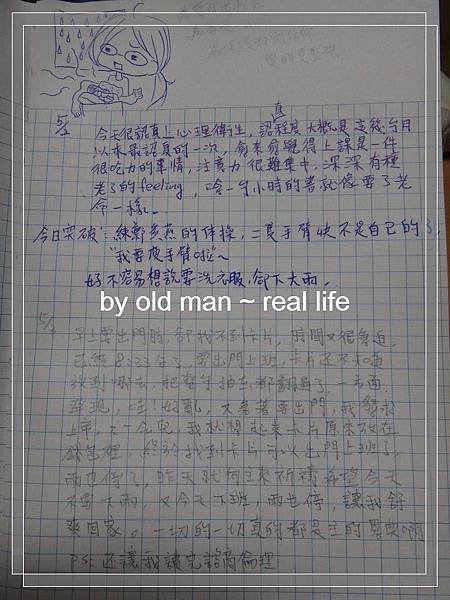 5/2
今天很認真上心理衛生，認真程度大概是這幾個月
以來最認真的一次，愈來愈覺得上課是一件
很吃力的事情，注意力很難集中，深深有種
老了的feeling，唸一小時的書就像要了老
命一樣。
今日突破：練鄭多燕的体操，二隻手臂快不是自己的了，
"我要瘦手臂啦~"
好不容易想說要洗衣服，卻下大雨。
by old man ~ real life
5/3
早上要出門時，卻找不到卡片，時間又很急迫
已經8:33分了，要出門上班，卡片還不知道
跑到哪去，把整個抽屜都翻了，一方面
發現，哇！好亂，又急著要出門，我祈求
上帝，不一會兒，我就想起來卡片原來放在
錢包裡，終於找到卡片可以出門上班了，
雨也停了，昨天就向主來祈禱希望今天
不要下雨，又今天下班，雨也停，讓我舒
爽回家。一切的一切真的都是主的恩典啊
PS: 还讓我讀完諮商倫理